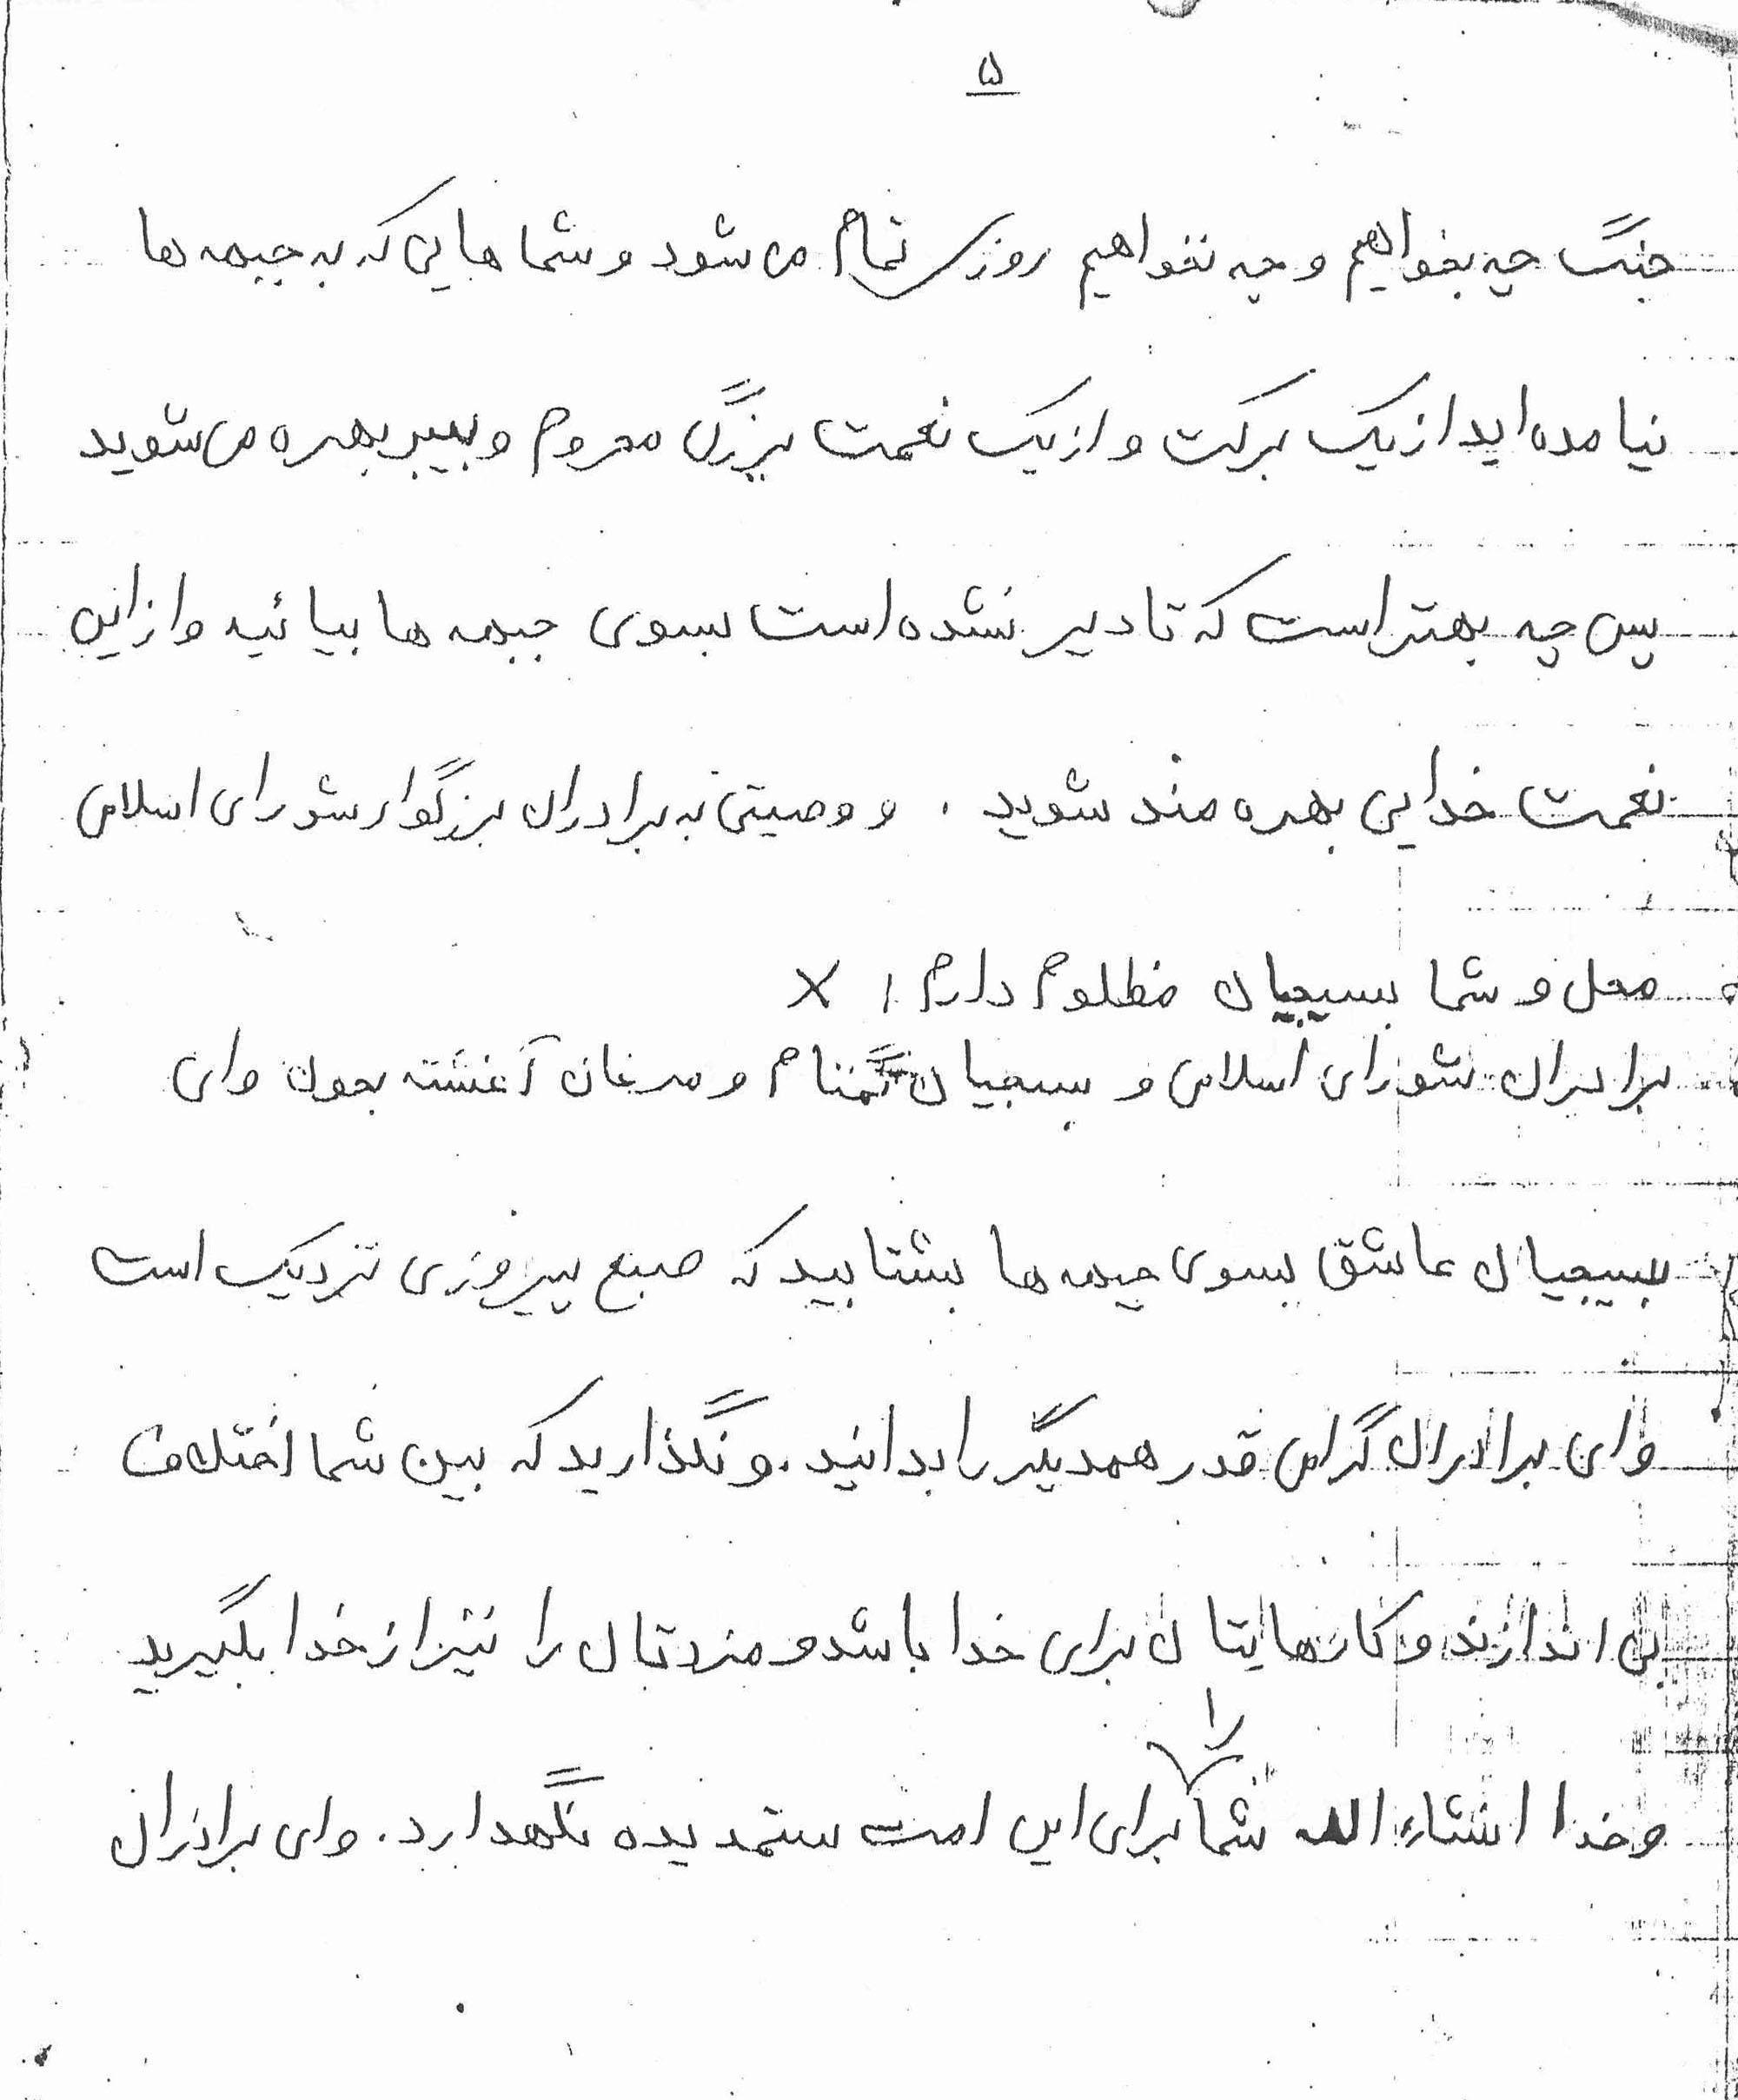 ۵
جنگ چه بخواهیم و چه نخواهیم روزی تمام می شود و شما هایی که به جبهه ها
نیامده اید از یک برکت و از یک نعمت بزرگ محروم و بی بهره می شوید
پس چه بهتر است که تا دیر نشده است بسوی جبهه ها بیائید و از این
نعمت خدایی بهره مند شوید . و وصیتی به برادران بزرگوار شورای اسلامی
محل و شما بسیجیان مظلوم دارم ; X
برادران شورای اسلامی و بسیجیان گمنام و مرغان آغشته بخون وای
بسیجیان عاشق بسوی جبهه ها بشتابید که صبح پیروزی نزدیک است
وای برادران گرامی قدر همدیگر را بدانید . و نگذارید که بین شما اختلاف
بی اندازند و کارهایتان برای خدا باشد و مزدتان را نیز از خدا بگیرید
و خدا انشاء الله شما را برای این امت ستمدیده نگهدارد . وای برادران